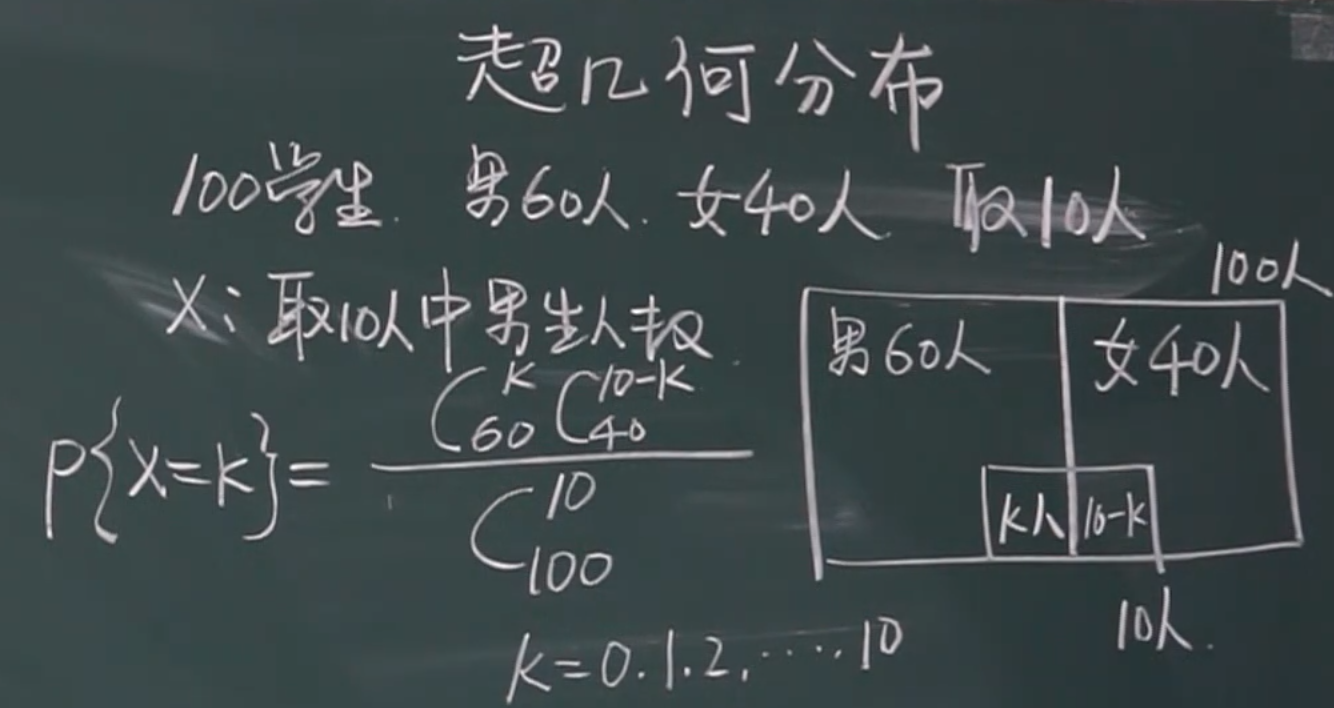 超几何分布
100学生. 男60人. 女40人 取10人
X: 取10人中男生人数
P{X=K}=
C₆₀ᴷ C₄₀¹⁰⁻ᴷ
C₁₀₀¹⁰
K=0.1.2.……10
100人
男60人 女40人
K人 10-K
10人.